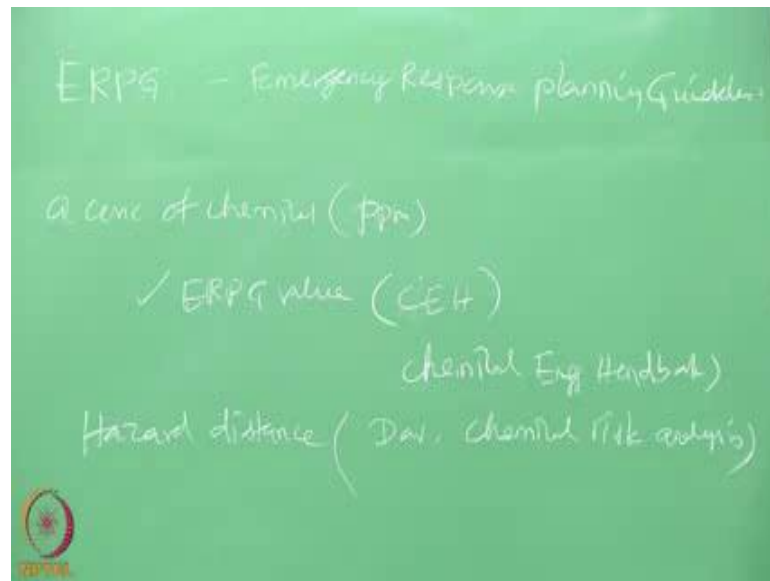 ERPG - Emergency Response planning Guideline
a conc of chemical (ppm)
✓ ERPG value (CEH)
Chemical Eng Handbook)
Hazard distance ( Dow. Chemical risk analysis)
NPTEL